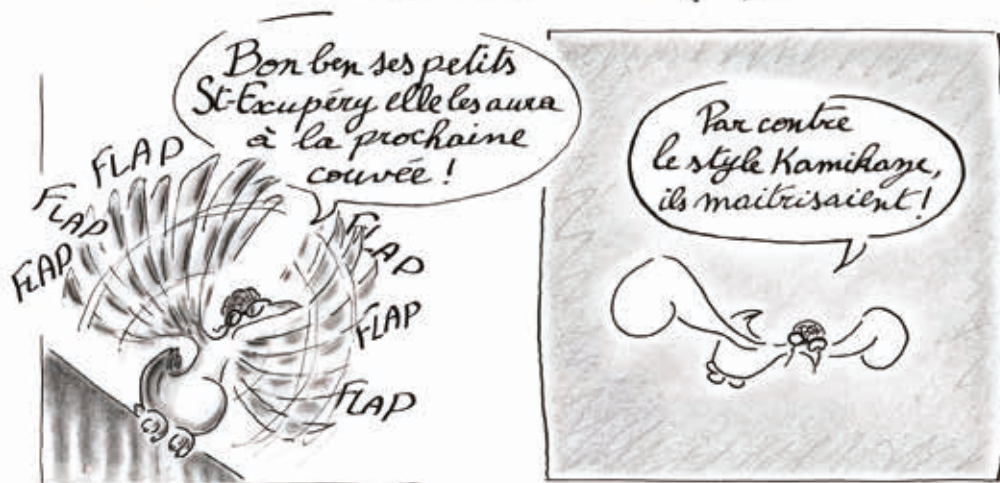 Bon ben ses petits
St-Exupéry elle les aura
à la prochaine
couvée !
FLAP
FLAP
FLAP
FLAP
FLAP
FLAP
Par contre
le style Kamikaze,
ils maitrisaient !